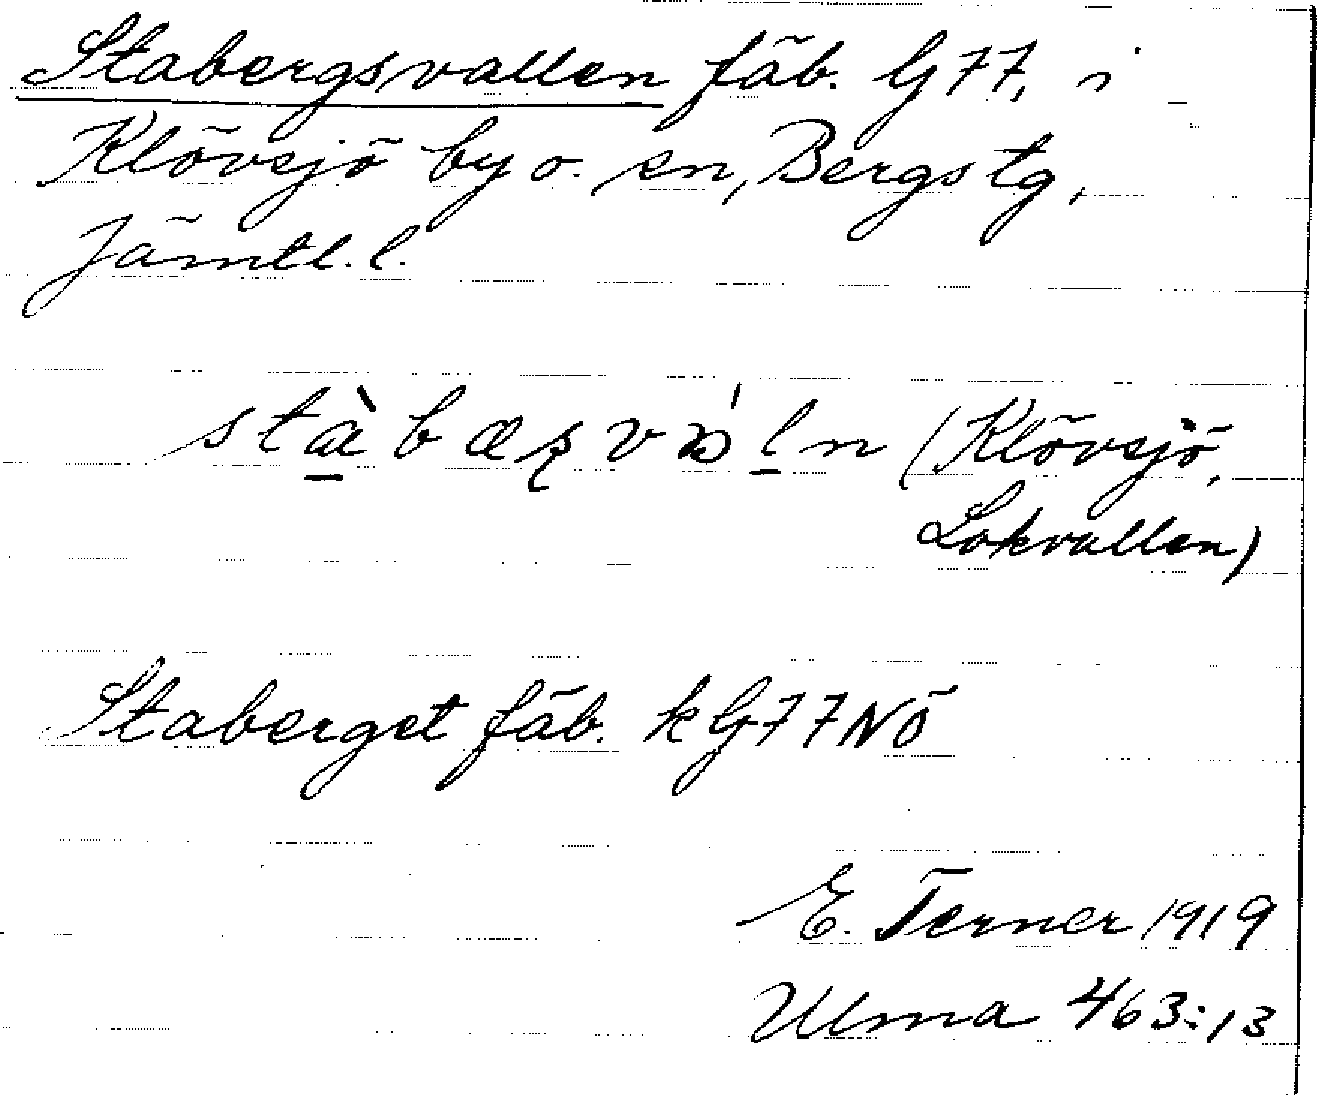 Stabergsvallen fäb. G77, i
Klövsjö by o. sn, Bergs tg,
Jämtl. l.
(Klövsjö,
Lokvallen)
Staberget fäb. k G77NÖ
E. Terner 1919
Ulma 463:13